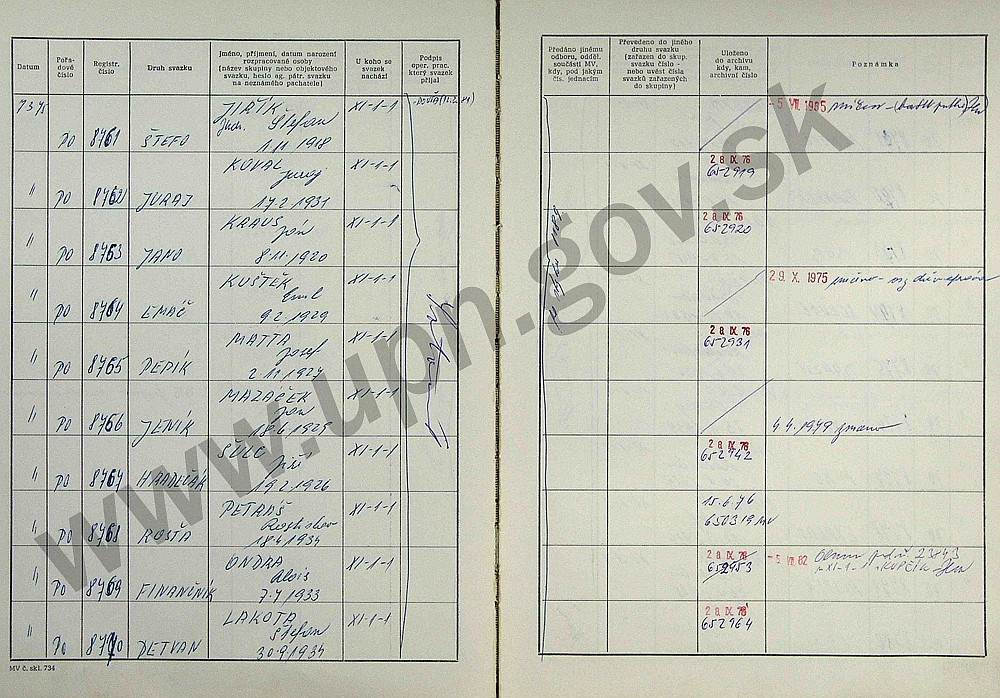 Datum
Pořa-
dové
číslo
Registr.
číslo
Druh svazku
Jméno, příjmení, datum narození
rozpracované osoby
(název skupiny nebo objektového
svazku, heslo ag. pátr. svazku
na neznámého pachatele)
U koho se
svazek
nachází
Podpis
oper. prac.
který svazek
přijal
Předáno jinému
odboru, odděl.
součásti MV,
kdy, pod jakým
čís. jednacím
Převedeno do jiného
druhu svazku
(zařazen do skup.
svazku číslo -
nebo uvést čísla
svazků zařazených
do skupiny)
Uloženo
do archivu
kdy, kam,
archivní číslo
Poznámka
PO 8761 ŠTEFO
JUDr. Štefan
1.11.1918
XI-1-1
- 5. VII. 1985
" PO 8762 JURAJ
KOVAL
Juraj
17.2.1931
XI-1-1
2 8. IX. 76
652919
" PO 8763 JANO
KRAUS
Ján
8.11.1920
XI-1-1
2 8. IX. 76
652920
" PO 8764 EMAČ
KUŠTEK
Emil
9.2.1929
XI-1-1
2 9. X. 1975
" PO 8765 PEPÍK
MATTA
Josef
2.11.1927
XI-1-1
2 8. IX. 76
652931
" PO 8766 JENÍK
MAZÁČEK
Jan
18.6.1925
XI-1-1
4.4.1979
" PO 8767 HRADEČÁK
ŠULC
Jiří
19.2.1926
XI-1-1
2 8. IX. 76
652942
" PO 8768 ROSŤA
PETRÁŠ
18.4.1934
XI-1-1
15.6.76
650319 MV
" PO 8769 FINANČNÍK
ONDRA
Alois
7.4.1933
XI-1-1
2 8. IX. 76
652953
- 5. VII. 82
23843
XI-1-1
" PO 8770 DETVAN
LAKOTA
Štefan
30.9.1934
XI-1-1
2 8. IX. 76
652964
MV č. skl. 734
www.upn.gov.sk